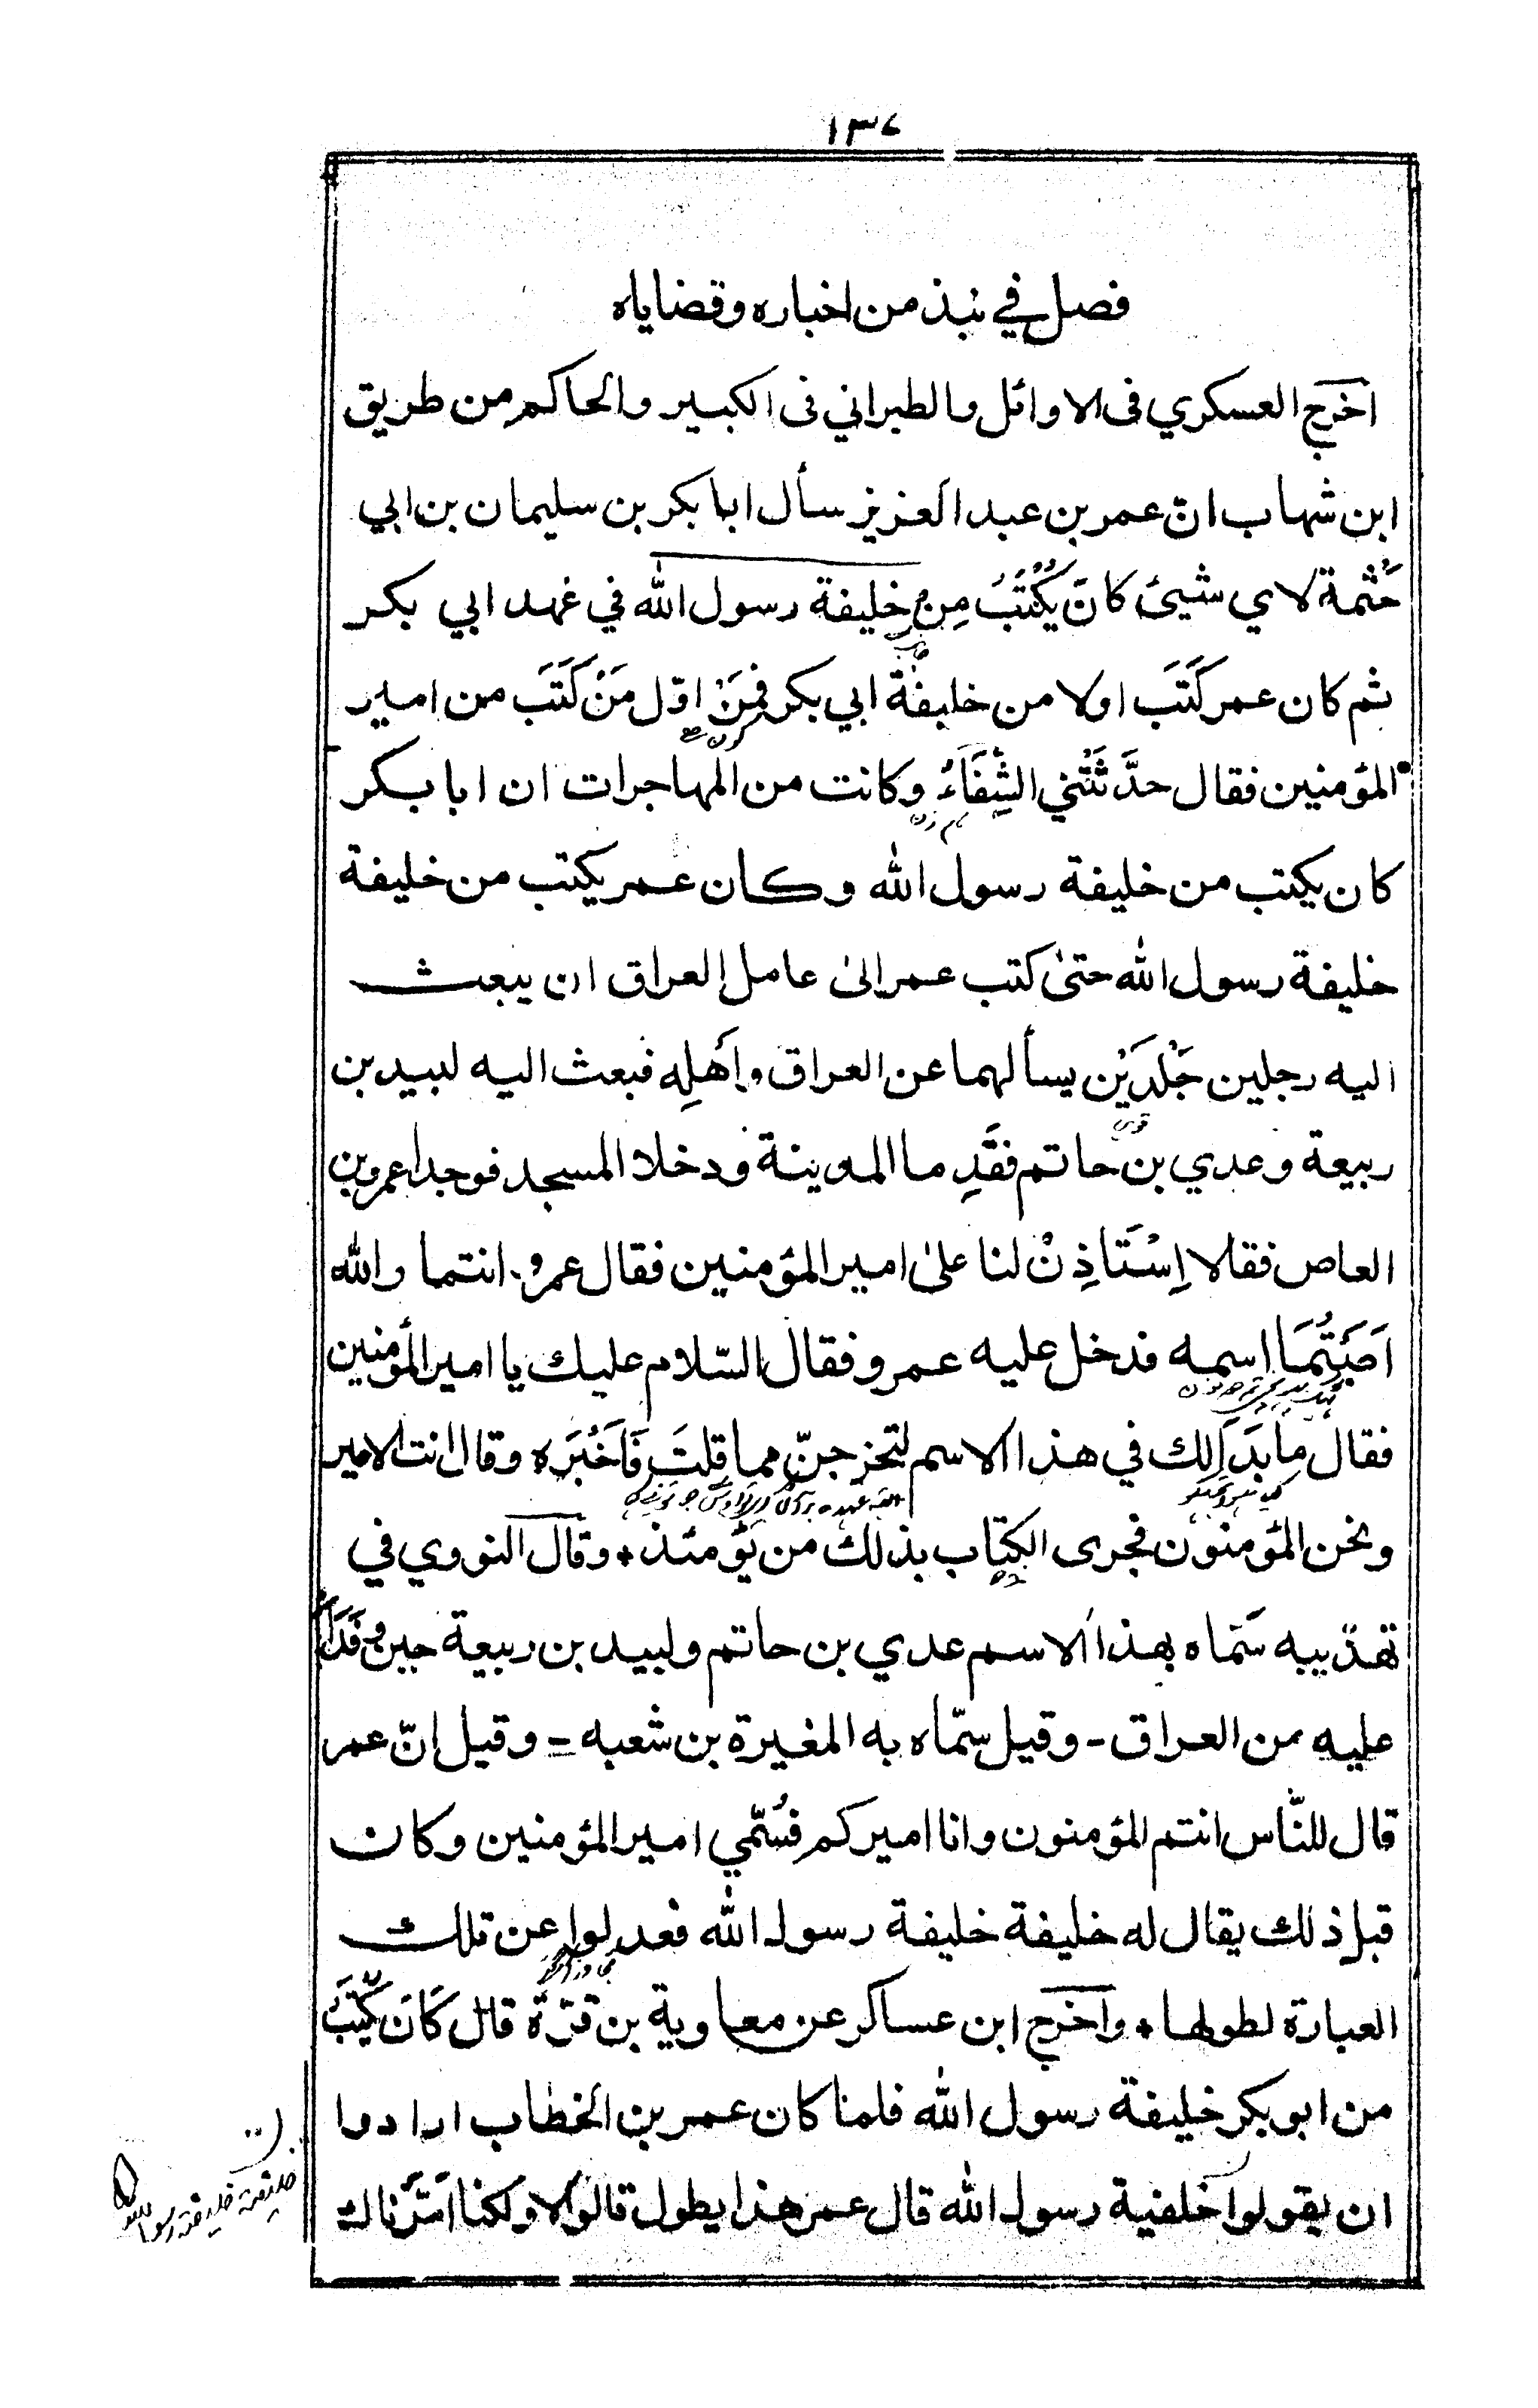 ١٣٧
فصل في نبذ من اخباره وقضاياه
اخرج العسكري في الاوائل والطبراني في الكبير والحاكم من طريق
ابن شهاب انّ عمر بن عبد العزيز سأل ابا بكر بن سليمان بن ابي
حَثْمة لاي شيئ كانَ يُكْتَبُ مِن خليفة رسول الله في عهد ابي بكر
ثم كان عمر كَتَبَ اولا من خليفة ابي بكر فمَنْ اوّل مَنْ كَتَبَ من امير
المؤمنين فقال حدَّثَتْني الشِفَاءُ وكانت من المهاجرات ان ابا بكر
كان يكتب من خليفة رسول الله وكان عمر يكتب من خليفة
خليفة رسول الله حتى كتب عمر الى عامل العراق ان يبعث
اليه رجلين جَلْدَيْن يسألهما عن العراق وأهلِه فبعث اليه لبيد بن
ربيعة وعدي بن حاتم فقَدِما المدينة ودخلا المسجد فوجدا عمرو بن
العاص فقالا اِسْتَاذِنْ لنا على امير المؤمنين فقال عمرو انتما والله
اَصَبْتُمَا اسمه فدخل عليه عمرو فقال السّلام عليك يا امير المؤمنين
فقال ما بَدَالك في هذا الاسم لتخرجنّ مما قلتَ فَاَخْبَرَه وقال انت الامير
ونحن المؤمنون فجرى الكتاب بذلك من يَوْمئذ * وقال النووي في
تهذيبه سَمّاه بهذا الاسم عدي بن حاتم ولبيد بن ربيعة حين وفَدَا
عليه من العراق - وقيل سمّاه به المغيرة بن شعبه - وقيل انّ عمر
قال للنّاس انتم المؤمنون وانا اميركم فسُمّي امير المؤمنين وكان
قبل ذلك يقال له خليفة خليفة رسول الله فعدلوا عن تلك
العبارة لطولها * واخرج ابن عساكر عن معاوية بن قرّة قال كَانَ يُكْتَبُ
من ابو بكر خليفة رسول الله فلما كان عمر بن الخطاب ارادوا
ان يقولوا خلفية رسول الله قال عمر هذا يطول قالوا لا ولكنا امّرناك
خليفة خليفة رسول الله